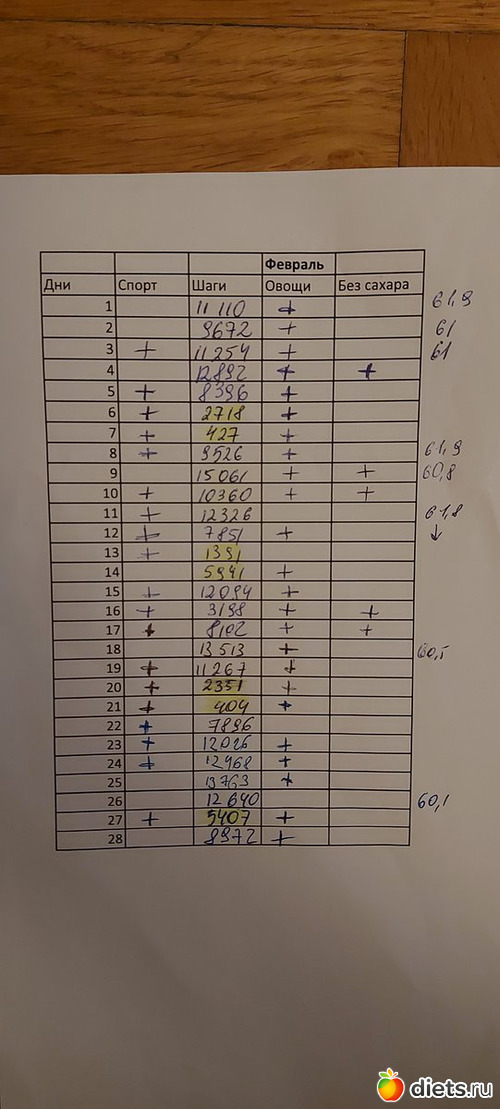 Февраль
Дни Спорт Шаги Овощи Без сахара
1 11 110 + 61,9
2 9672 + 61
3 + 11254 + 61
4 12892 + +
5 + 8396 +
6 + 2718 +
7 + 427 +
8 + 9526 + 61,9
9 15061 + + 60,8
10 + 10360 + +
11 + 12326 61,8
12 + 7851 + ↓
13 + 1391
14 5941 +
15 + 12094 +
16 + 3198 + +
17 + 8102 + +
18 13513 + 60,5
19 + 11267 +
20 + 2351 +
21 + 404 +
22 + 7896
23 + 12026 +
24 + 12968 +
25 13763 +
26 12640 60,1
27 + 5407 +
28 8972 +
diets.ru